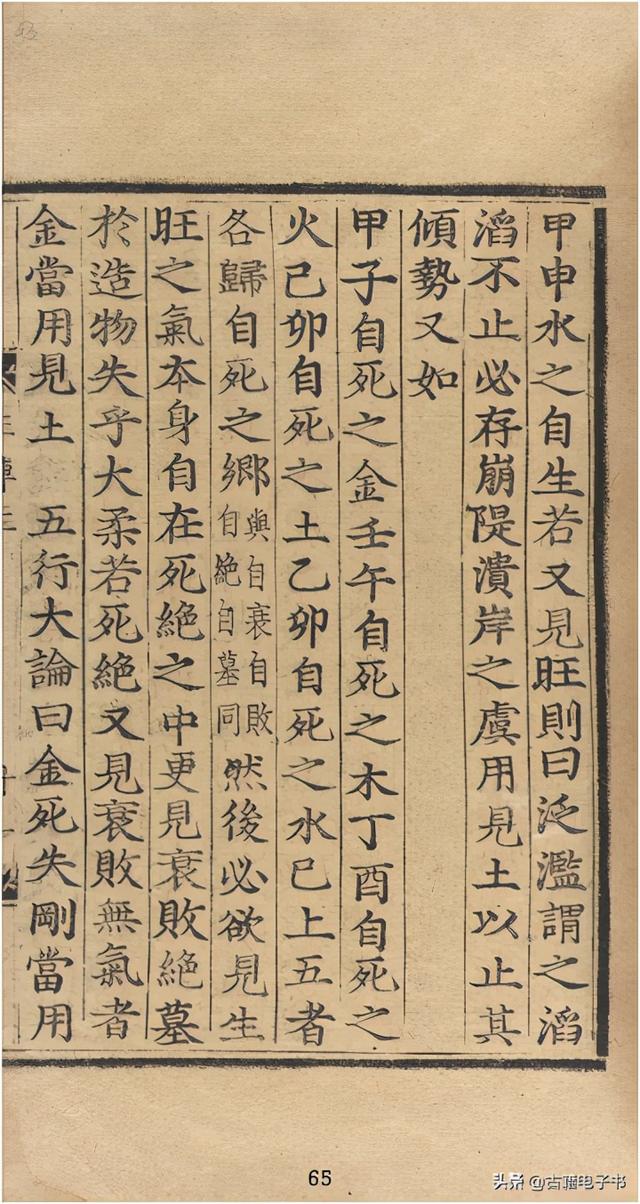 甲申水之自生若又見旺則曰泛濫謂之滔
滔不止必存崩隄潰岸之虞用見土以止其
傾勢又如
甲子自死之金壬午自死之木丁酉自死之
火己卯自死之土乙卯自死之水已上五者
各歸自死之鄉與自衰自敗自絕自墓同然後必欲見生
旺之氣本身自在死絕之中更見衰敗絕墓
於造物失乎大柔若死絕又見衰敗無氣者
金當用見土 五行大論曰金死失剛當用
65
头条@古籍电子书